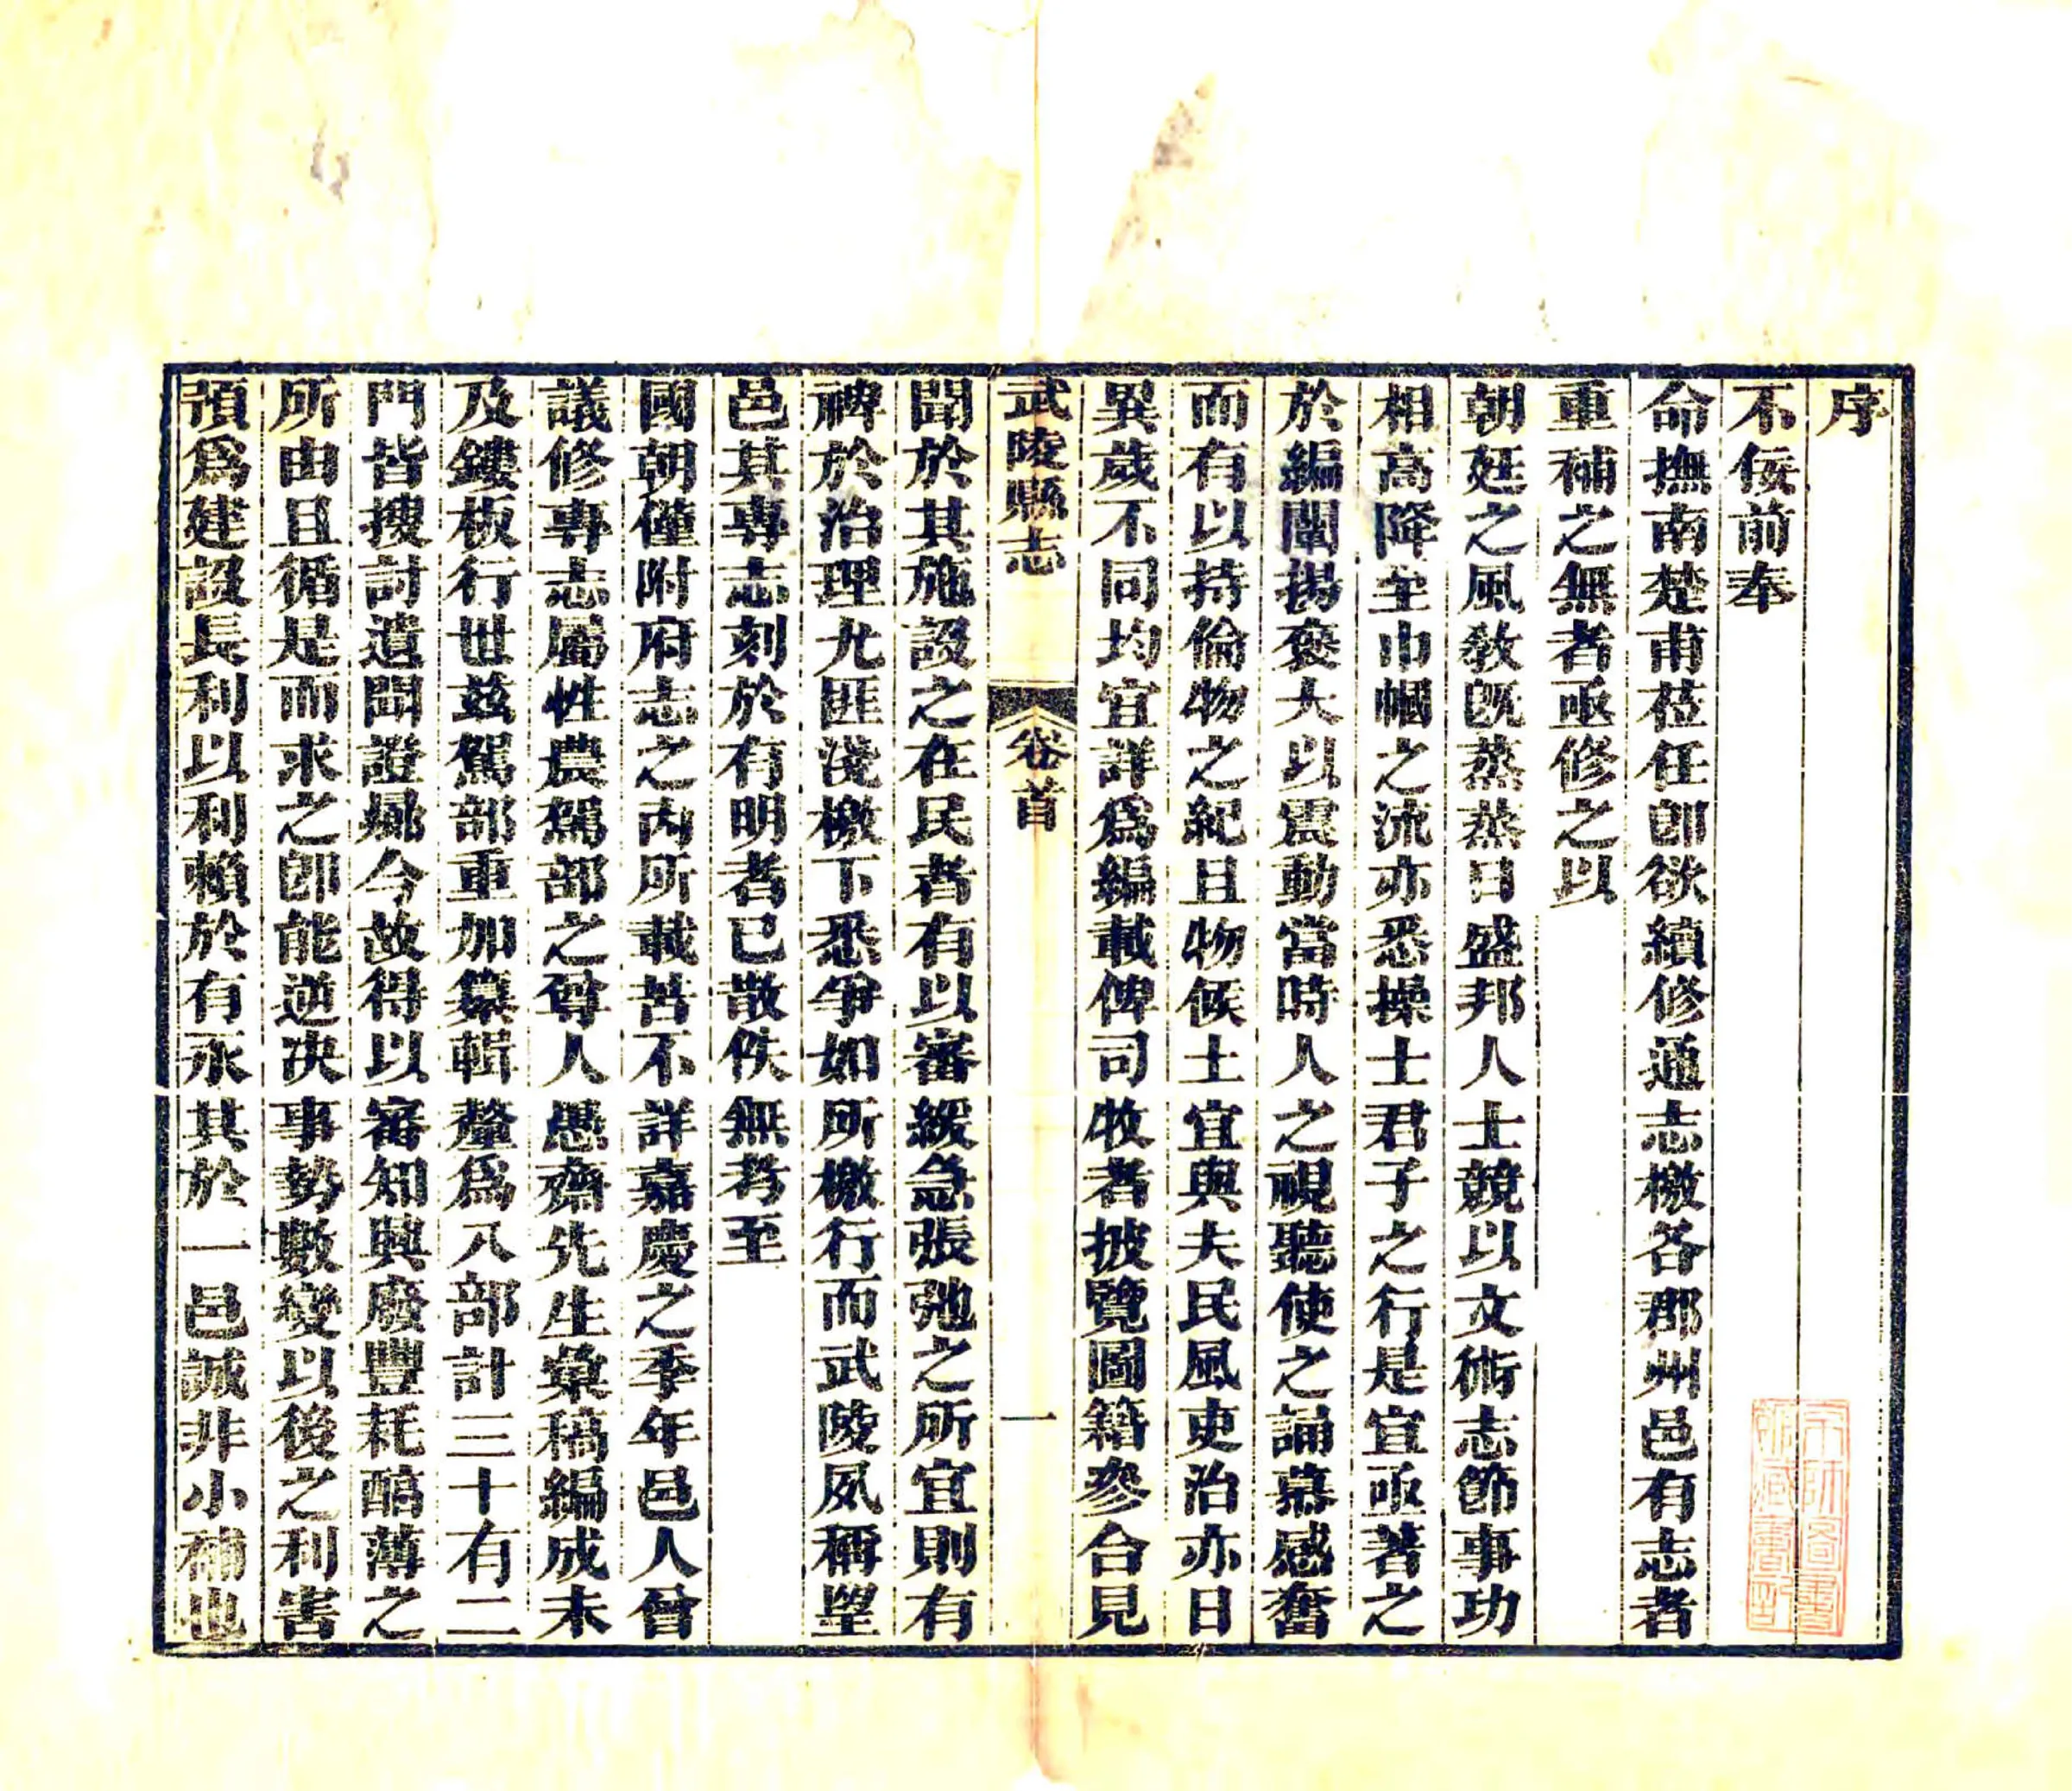 序
不佞前奉
命撫南楚甫莅任卽欲續修通志檄各郡州邑有志者
重補之無者亟修之以
朝廷之風敎旣蒸蒸日盛邦人士競以文術志節事功
相高降至巾幗之流亦悉操士君子之行是宜亟著之
於編闡揚褒大以震動當時人之視聽使之誦慕感奮
而有以持倫物之紀且物候土宜與夫民風吏治亦日
異歲不同均宜詳爲編載俾司牧者披覽圖籍參合見
武陵縣志 卷首 一
聞於其施設之在民者有以審緩急張弛之所宜則有
裨於治理尤匪淺檄下悉爭如所檄行而武陵夙稱望
邑其專志刻於有明者已散佚無考至
國朝僅附府志之內所載苦不詳嘉慶之季年邑人曾
議修專志屬性農駕部之尊人愚齋先生彙稿編成未
及鏤板行世茲駕部重加纂輯釐爲八部計三十有二
門皆搜討遺聞證鄉今故得以審知興廢豐耗醕薄之
所由且循是而求之卽能逆決事勢數變以後之利害
預爲建設長利以利賴於有永其於一邑誠非小補也